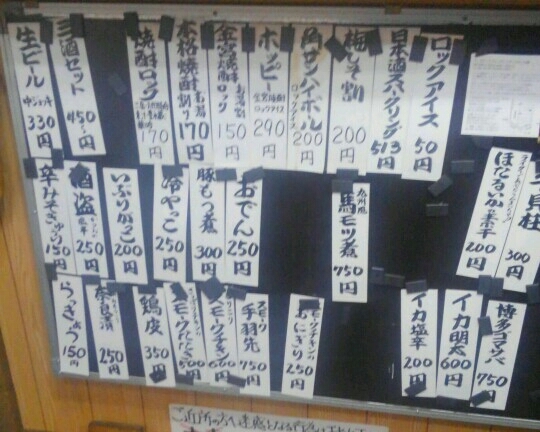 ロックアイス 50円
日本酒スパークリング 513円
梅しそ割 200円
角ハイボール 200円
ホッピー 290円
金宮焼酎ロック 150円
本格焼酎 170円
焼酎ロック 170円
三酒セット 450円
生ビール 中ジョッキ 330円
貝柱 300円
ほたるいか素干 200円
九州風 馬モツ煮 750円
おでん 250円
豚もつ煮 300円
冷やっこ 250円
いぶりがっこ 200円
酒盗 250円
辛みそきゅうり 150円
博多ゴマサバ 750円
イカ明太 600円
イカ塩辛 200円
スモークチキンの おにぎり 250円
スモーク 手羽先 750円
スモークチキン 600円
スモークたたき 500円
鶏皮 350円
奈良漬 250円
らっきょう 150円
ご近所の方へ迷惑となる行為は